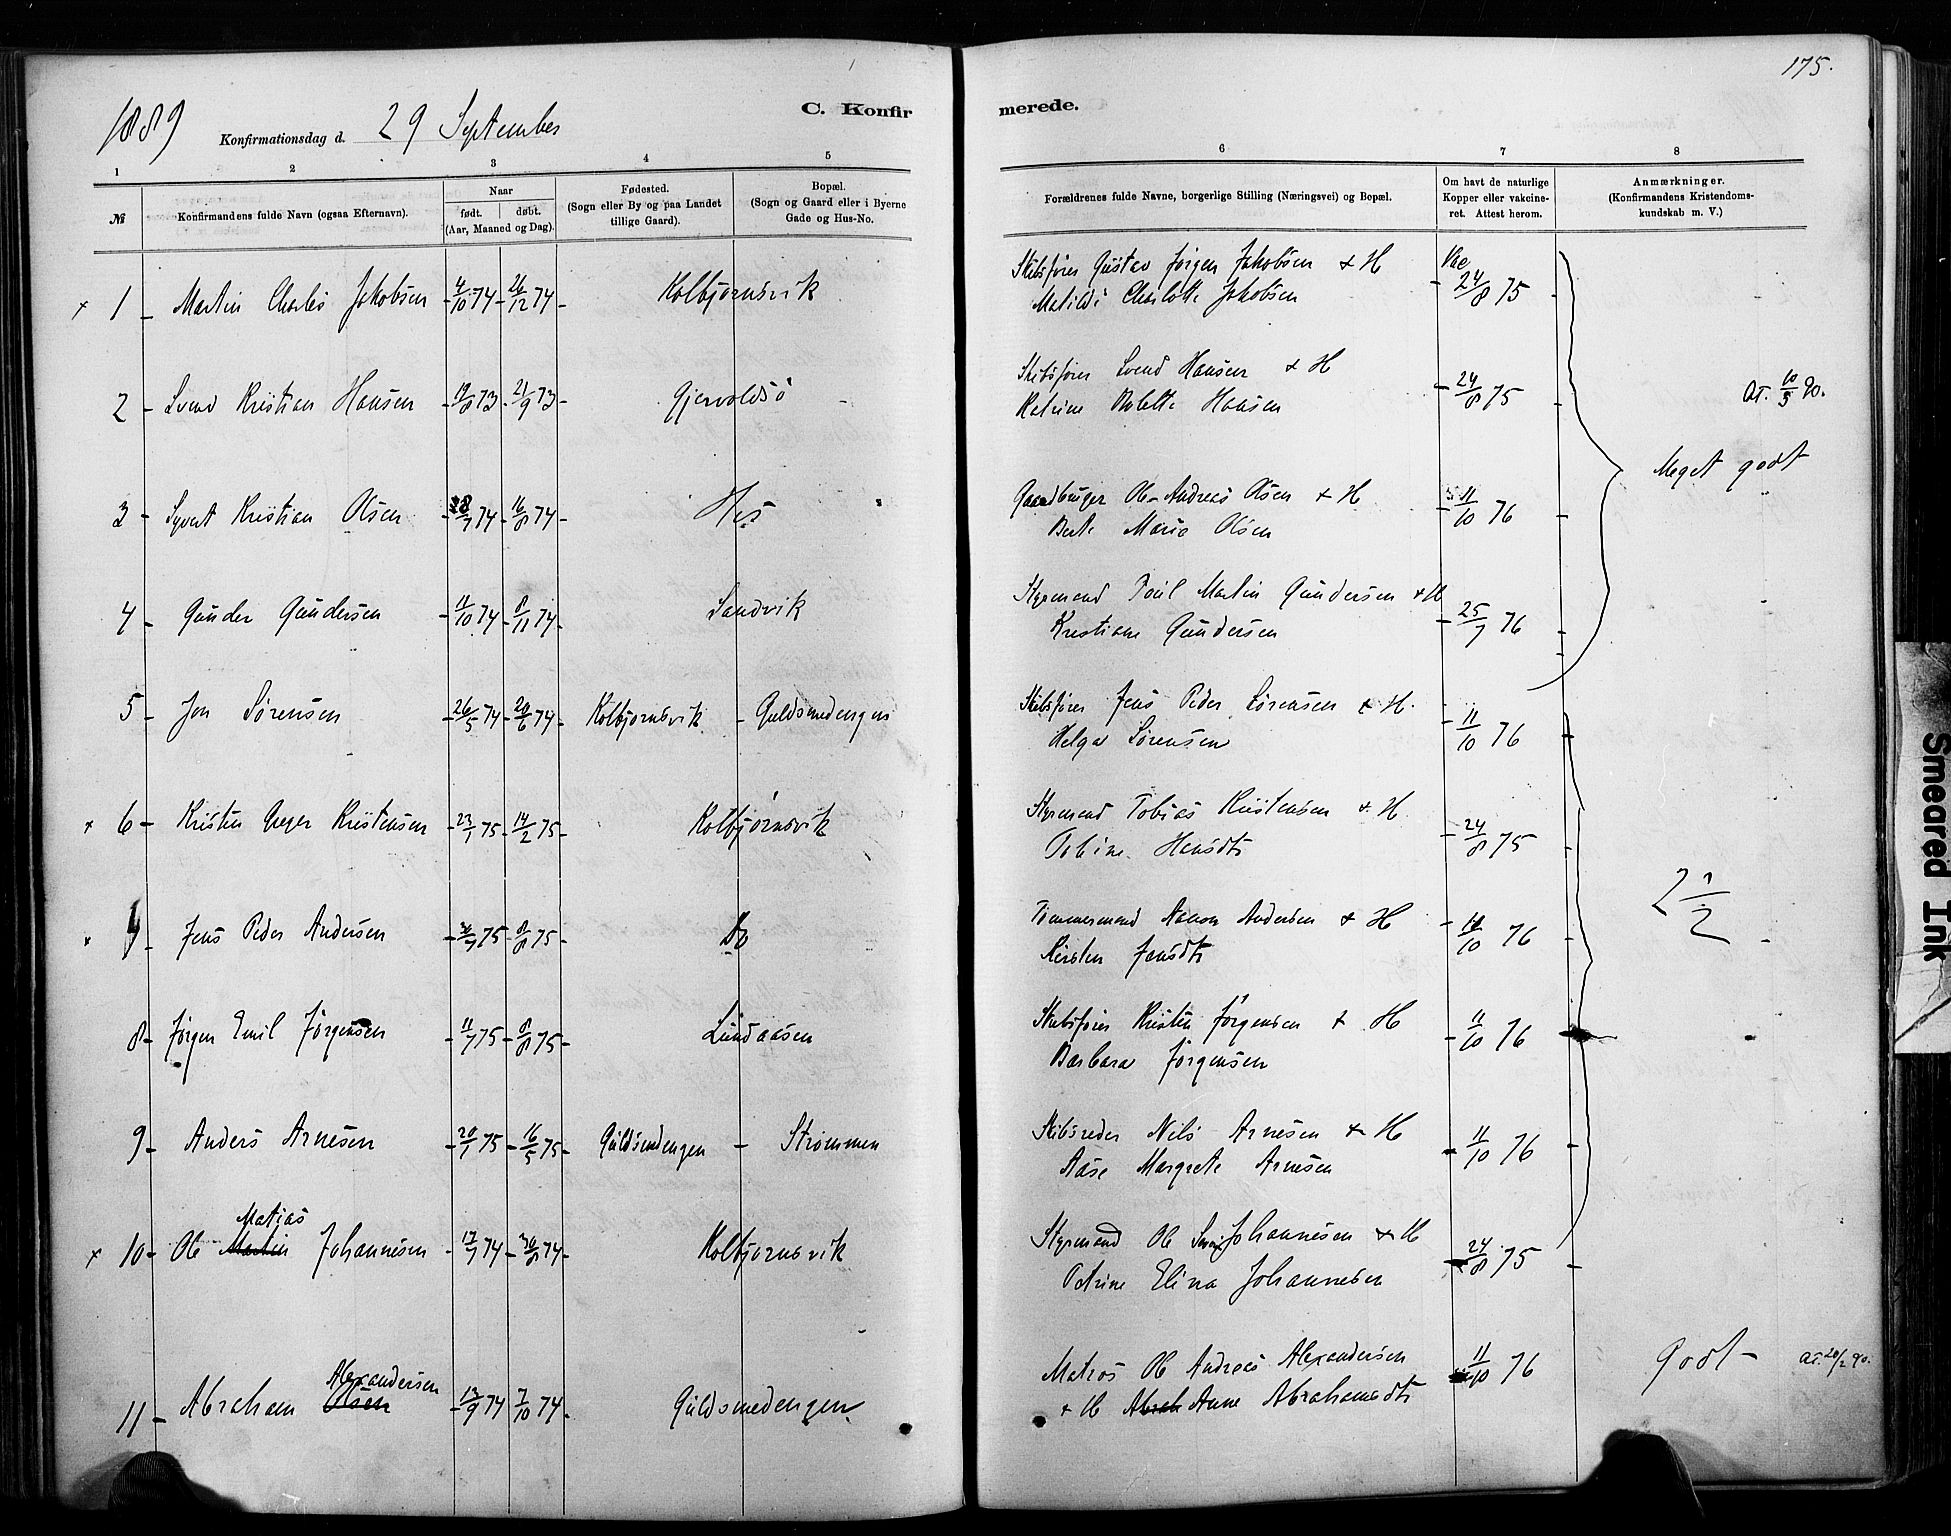 175.
1889
C. Konfirmerede.
Konfirmationsdag d. 29 September
1 2 3 4 5 6 7 8
№
Konfirmandens fulde Navn (ogsaa Efternavn).
Naar
født. døbt.
(Aar, Maaned og Dag).
Fødested.
(Sogn eller By og paa Landet
tillige Gaard).
Bopæl.
(Sogn og Gaard eller i Byerne
Gade og Hus-No.
Forældrenes fulde Navne, borgerlige Stilling (Næringsvei) og Bopæl.
Om havt de naturlige
Kopper eller vakcine-
ret. Attest herom.
Anmærkninger.
(Konfirmandens Kristendoms-
kundskab m. V.)
× 1 Martin Charles Jakobsen 4/10 74 26/12 74 Kolbjørnsvik Skibsfører Gustav Jørgen Jakobsen & H Vac 24/8 75
Matilde Charlotte Jakobsen
2 Svend Kristian Hansen 19/8 73 21/9 73 Gjervoldsø Skibsfører Svend Hansen & H 24/8 75 At. 10/5 90.
Katrine Bolette Hansen
Meget godt
3 Syvert Kristian Olsen 28/7 74 16/8 74 His Gaardbruger Ole Andreas Olsen & H 11/10 76
Berte Marie Olsen
4 Gunder Gundersen 11/10 74 8/11 74 Sandvik Styrmand Poul Martin Gundersen & H 25/7 76
Kristiane Gundersen
5 Jon Sørensen 26/5 74 20/6 74 Kolbjørnsvik - Guldsmedengen Skibsfører Jens Peder Sørensen & H 11/10 76
Helga Sørensen
× 6 Kristen Greger Kristensen 23/1 75 14/2 75 Kolbjørnsvik Styrmand Tobias Kristensen & H 24/8 75
Tobine Hansdt
2 1/2
× Jens Peder Andersen 75 8/8 75 Do Tømmermand Andersen & H 11/10 76
Kirsten Jensdt
8 Jørgen Emil Jørgensen 11/7 75 8/8 75 Lundaasen Skibsfører Kristen Jørgensen & H 11/10 76
Barbara Jørgensen
9 Anders Arnesen 20/1 75 16/5 75 Guldsmedengen - Strømmen Skibsreder Nils Arnesen & H 11/10 76
Aase Margrete Arnesen
Matias
× 10 Ole Martin Johannesen 17/7 74 30/8 74 Kolbjørnsvik Styrmand Ole Johannesen & H 24/8 75
Petrine Elina Johannesen
Alexandersen
11 Abraham Olsen 13/9 74 7/10 74 Guldsmedengen Matros Ole Andreas Alexandersen 11/10 76 Godt At. 20/2 90.
& H Abrah Anne Abrahamsdt
Smeared Ink